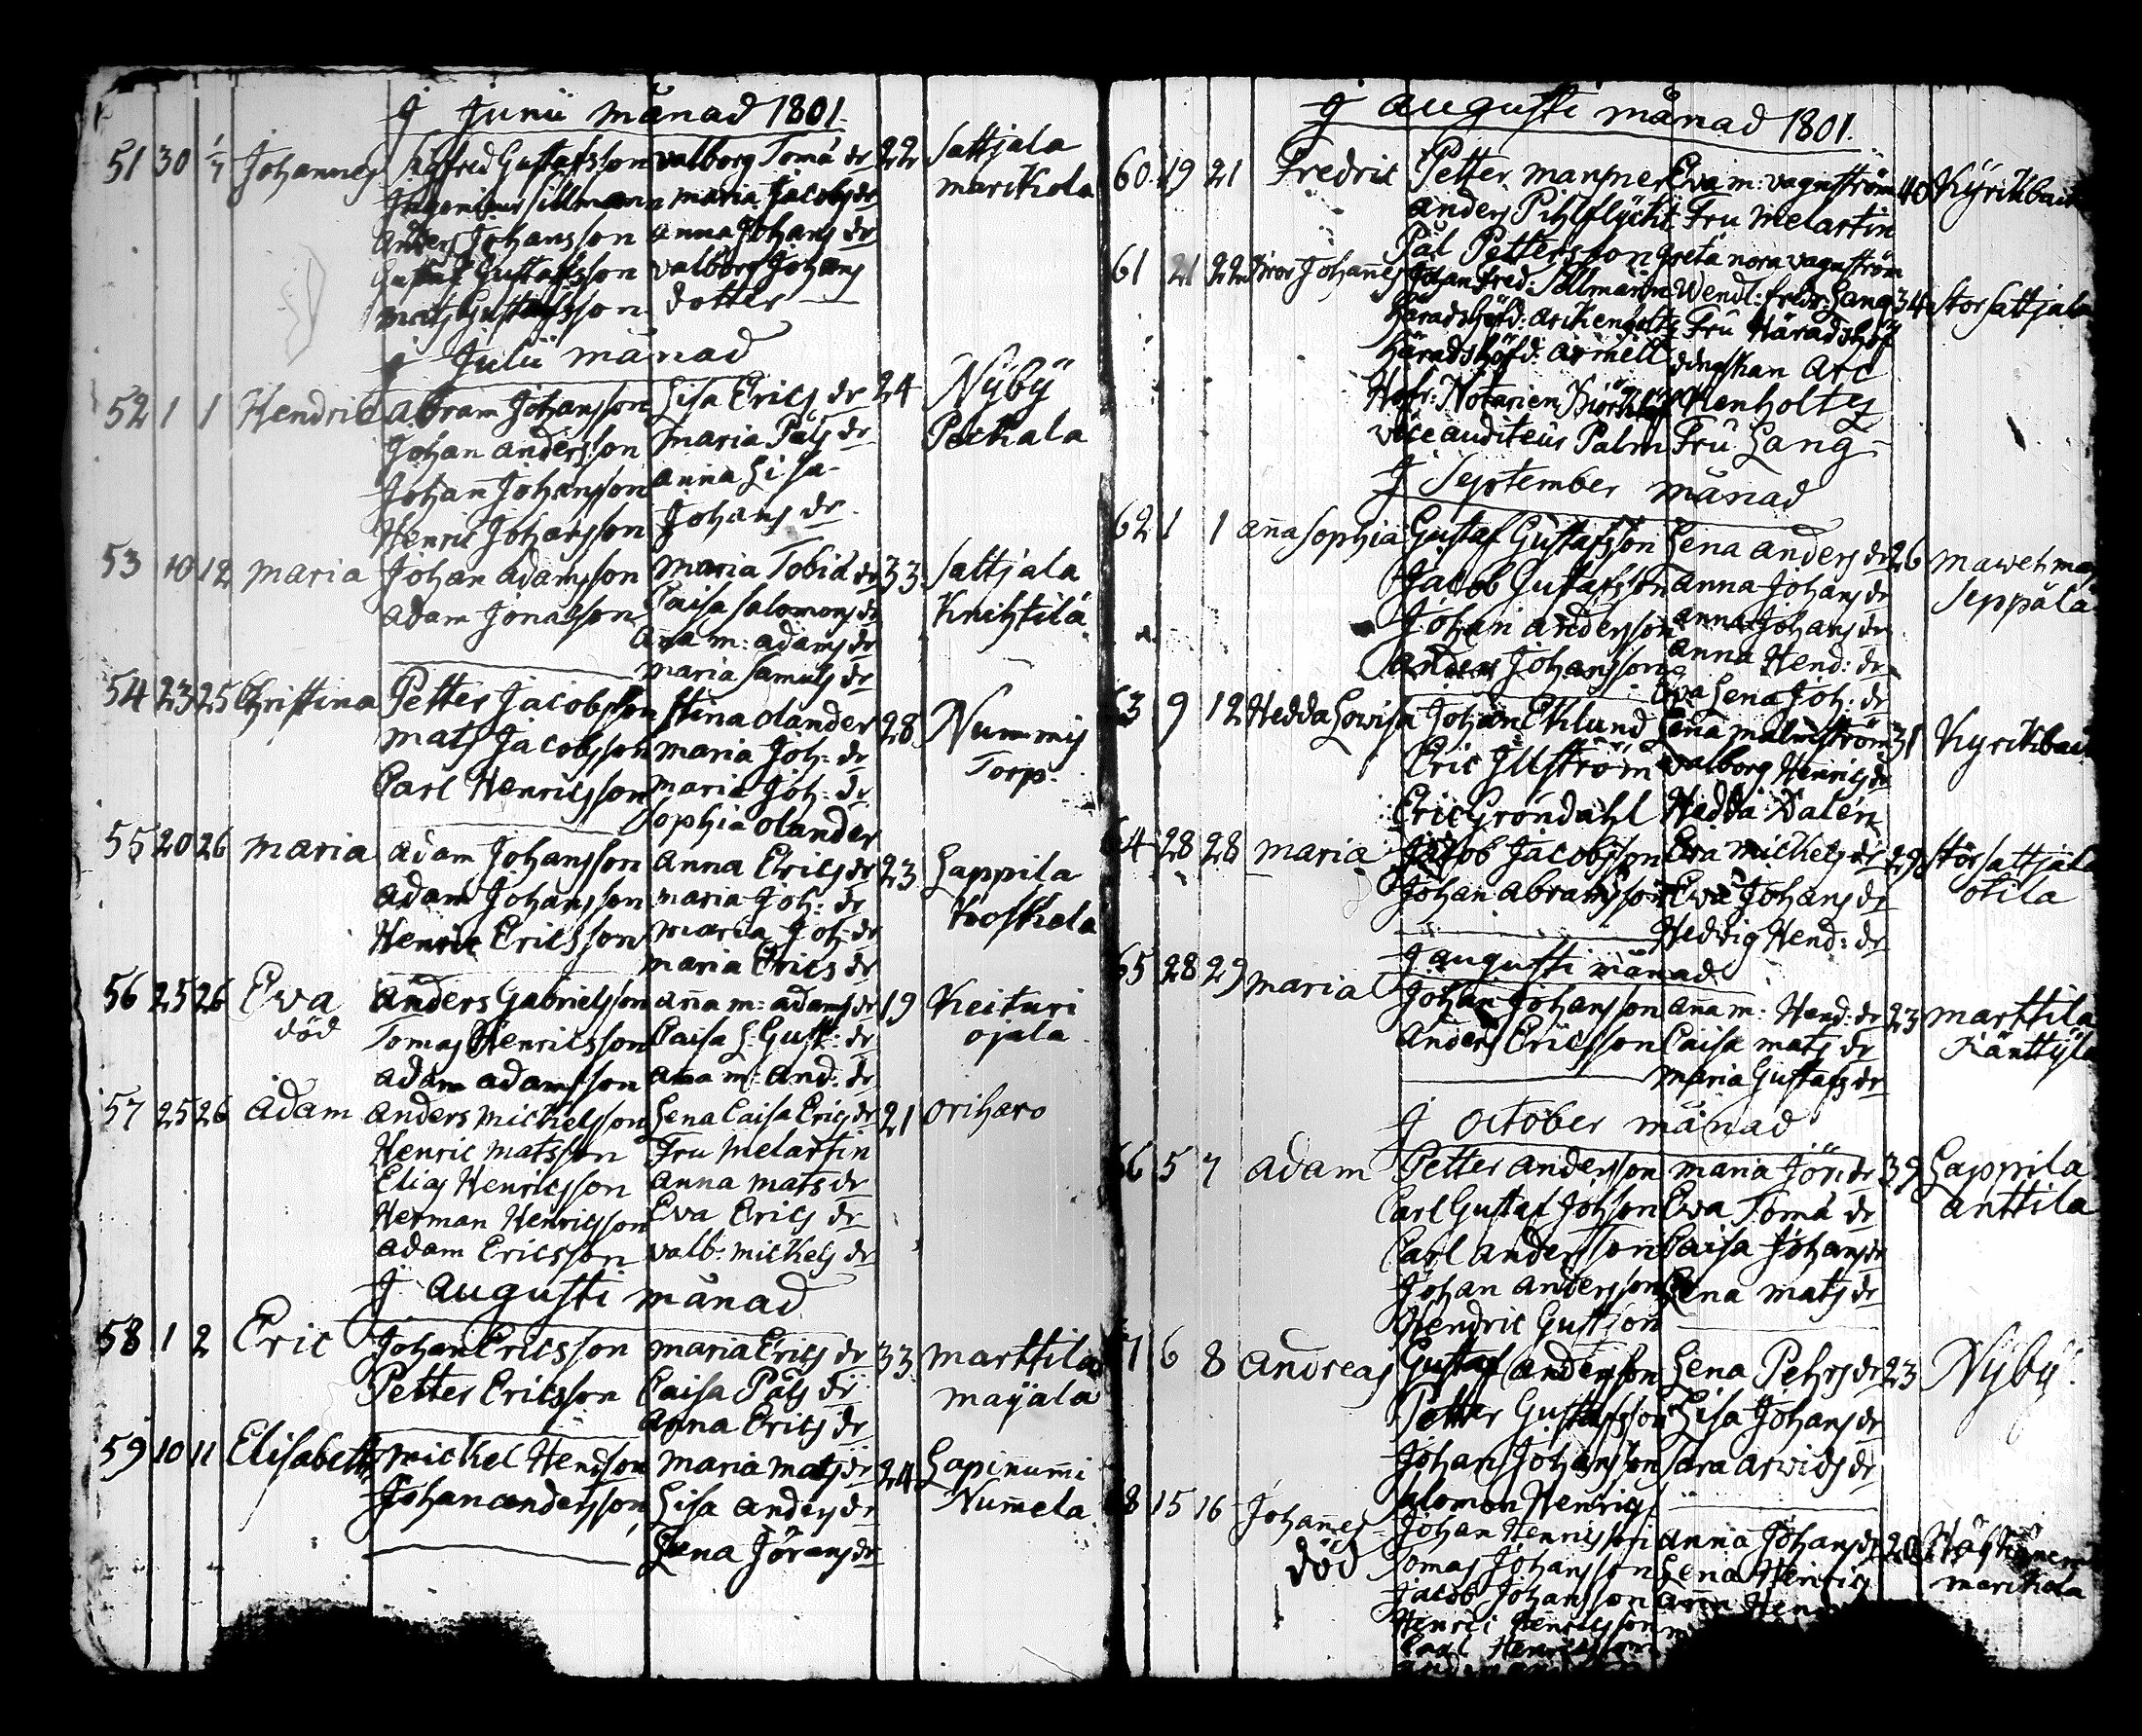 J Junii månad 1801.
51 30 1/7 Johannes Sigfred Gustafsson valborg Tomä dr 22 Sattjala
Ingenieur Sillman maria Jacobs dr marikola
Anders Johansson anna Johans dr
Gustaf Gustafsson valborg Johans
mats Gustafsson dotter
J Julii månad
52 1 1 Hendric Abram Johansson Lisa Erics dr 24 Nÿbÿ
Johan andersson maria Påls dr Peckala
Johan Johansson anna Lisa
Henric Johansson Johans dr
53 10 12 maria Johan adamsson maria Tobiä dr 33 Sattjala
adam Jonasson Caisa salomons dr Knihtilä
Aña m: adams dr
maria samuels dr
54 23 25 Christina Petter Jacobsson stina olander 28 Nummis
mats Jacobsson maria Joh: dr Torp.
Carl Henricsson maria Joh: dr
Sophia olander
55 20 26 maria adam Johansson anna Erics dr 23 Lappila
adam Johansson maria Joh: dr Koskela
Henric Ericsson maria Joh: dr
maria Erics dr
56 25 26 Eva anders Gabrielsson aña m: adams dr 19 Keituri
död Tomas Henricsson Caisa L: Gust: dr ojala
adam adamsson aña m: and: dr
57 25 26 adam anders michelsson Lena Caisa Erics dr 21 oriharo
Henric matsson Fru melartin
Elias Henricsson anna mats dr
Herman Henricsson Eva Erics dr
adam Ericsson valb: michels dr
J augusti månad
58 1 2 Eric Johan Ericsson maria Erics dr 33 marttila
Petter Ericsson Caisa Påls dr maÿala
Anna Erics dr
59 10 11 Elisabeth michel Hendsson maria mats dr 24 Lapinum̃i
Johan andersson Lisa anders dr Num̃ela
Lena Jörans dr
J augusti månad 1801.
60 19 21 Fredric Petter mansner Eva m: vagnström 40 Kÿrckback
anders Pihlflÿckt Fru melartin
Pål Pettersson Greta nora vagnström
61 21 22 Bror Johañes Johan Fred: Sillman Wendl: Fredr: Lang 34 stor sattjala
Häradshöfd: arckenholtz Fru Häradshöf
Häradshöfd: armell dingskan Arc
Hofr: Notarien Kenholtz
vice auditeur Palm Fru Lang
J September månad
62 1 1 aña Sophia Gustaf Gustafsson Lena anders dr 26
Jacob Gustafsson anna Johans dr Seppälä
Johan andersson anna Johans dr
anders Johansson anna Hend: dr
Eva Lena Joh: dr
63 9 12 Hedda Lowisa Johan Eklund Lena malmström 31 Kyrckback
Eric Illström valborg Henrics dr
Eric Gröndahl Hedda Dalén
64 28 28 maria Jacob Jacobsson Eva michels dr 29 stor sattjala
Johan abramsson Eva Johans dr otila
Hedvig Hend: dr
J augusti månad
65 28 29 maria Johan Johansson aña m: Hend: dr 23 marttila
Anders Ericsson Caisa mats dr Känttÿlä
maria Gustafs dr
J october månad
66 5 7 adam Petter andersson maria Jör: dr 39 Lappila
Carl Gustaf Johsson Eva Tomä dr anttila
Carl andersson Caisa Johans dr
Johan andersson Lena mats dr
Hendric Gustsson
67 6 8 Andreas Gustaf andersson Lena Pehrs dr 23 Nÿbÿ
Petter Gustafsson Lisa Johans dr
Johan Johansson sara arvids dr
Salomon Henrics
68 15 16 Johañes Johan Henricsson anna Johans dr 20
död Tomas Johansson Lena Henrics marikola
Jacob Johansson añ Hend
Henric Henricsson
Carl Henricsson